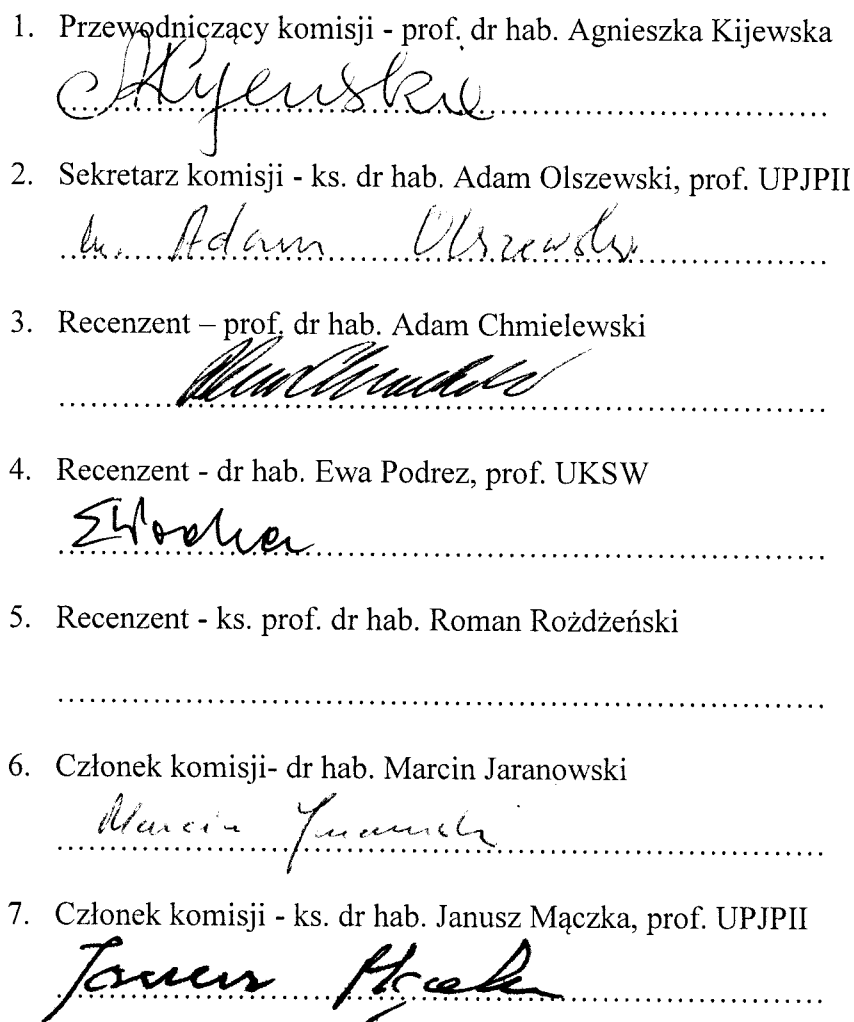 1. Przewodniczący komisji - prof. dr hab. Agnieszka Kijewska
AKijewska
2. Sekretarz komisji - ks. dr hab. Adam Olszewski, prof. UPJPII
ks. Adam Olszewski
3. Recenzent – prof. dr hab. Adam Chmielewski
4. Recenzent - dr hab. Ewa Podrez, prof. UKSW
5. Recenzent - ks. prof. dr hab. Roman Rożdżeński
6. Członek komisji- dr hab. Marcin Jaranowski
Marcin Jaranowski
7. Członek komisji - ks. dr hab. Janusz Mączka, prof. UPJPII
Janusz Mączka